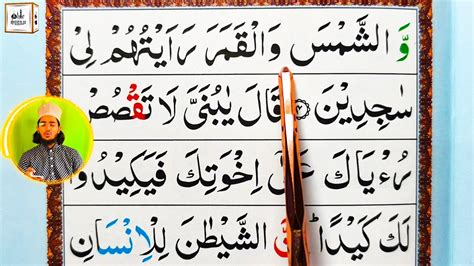 وَّ الشَّمْسَ وَالْقَمَرَ رَاَيْتُهُمْ لِيْ
سٰجِدِيْنَ ۝ قَالَ يٰبُنَيَّ لَا تَقْصُصْ
رُءْيَاكَ عَلٰٓى اِخْوَتِكَ فَيَكِيْدُوْا
لَكَ كَيْدًا ؕ الشَّيْطٰنَ لِلْاِنْسَانِ